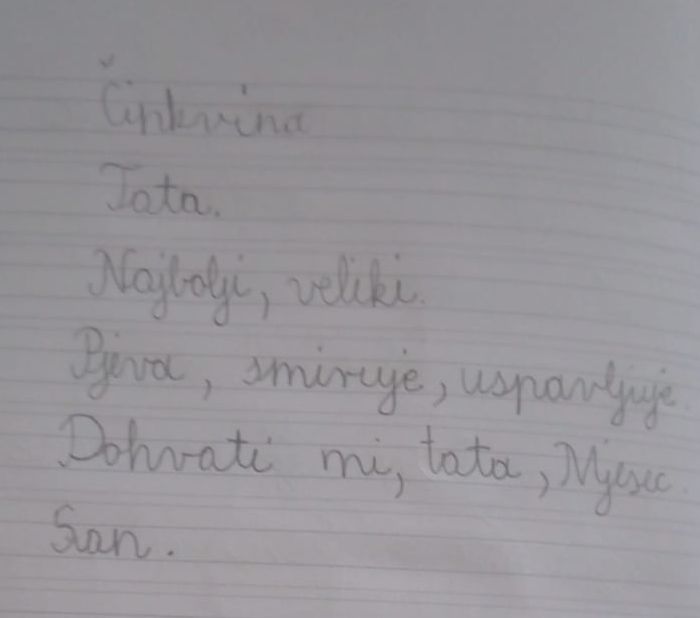 Činkvina
Tata.
Najbolji, veliki.
Pjeva, smiruje, uspavljuje
Dohvati mi, tata, Mjesec.
San.